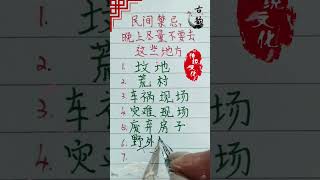 古韵
民间禁忌,
晚上尽量不要去
这些地方
1. 坟地
2. 荒村
3. 车祸现场
4. 灾难现场
5. 废弃房子
6. 野外
7.
传统文化